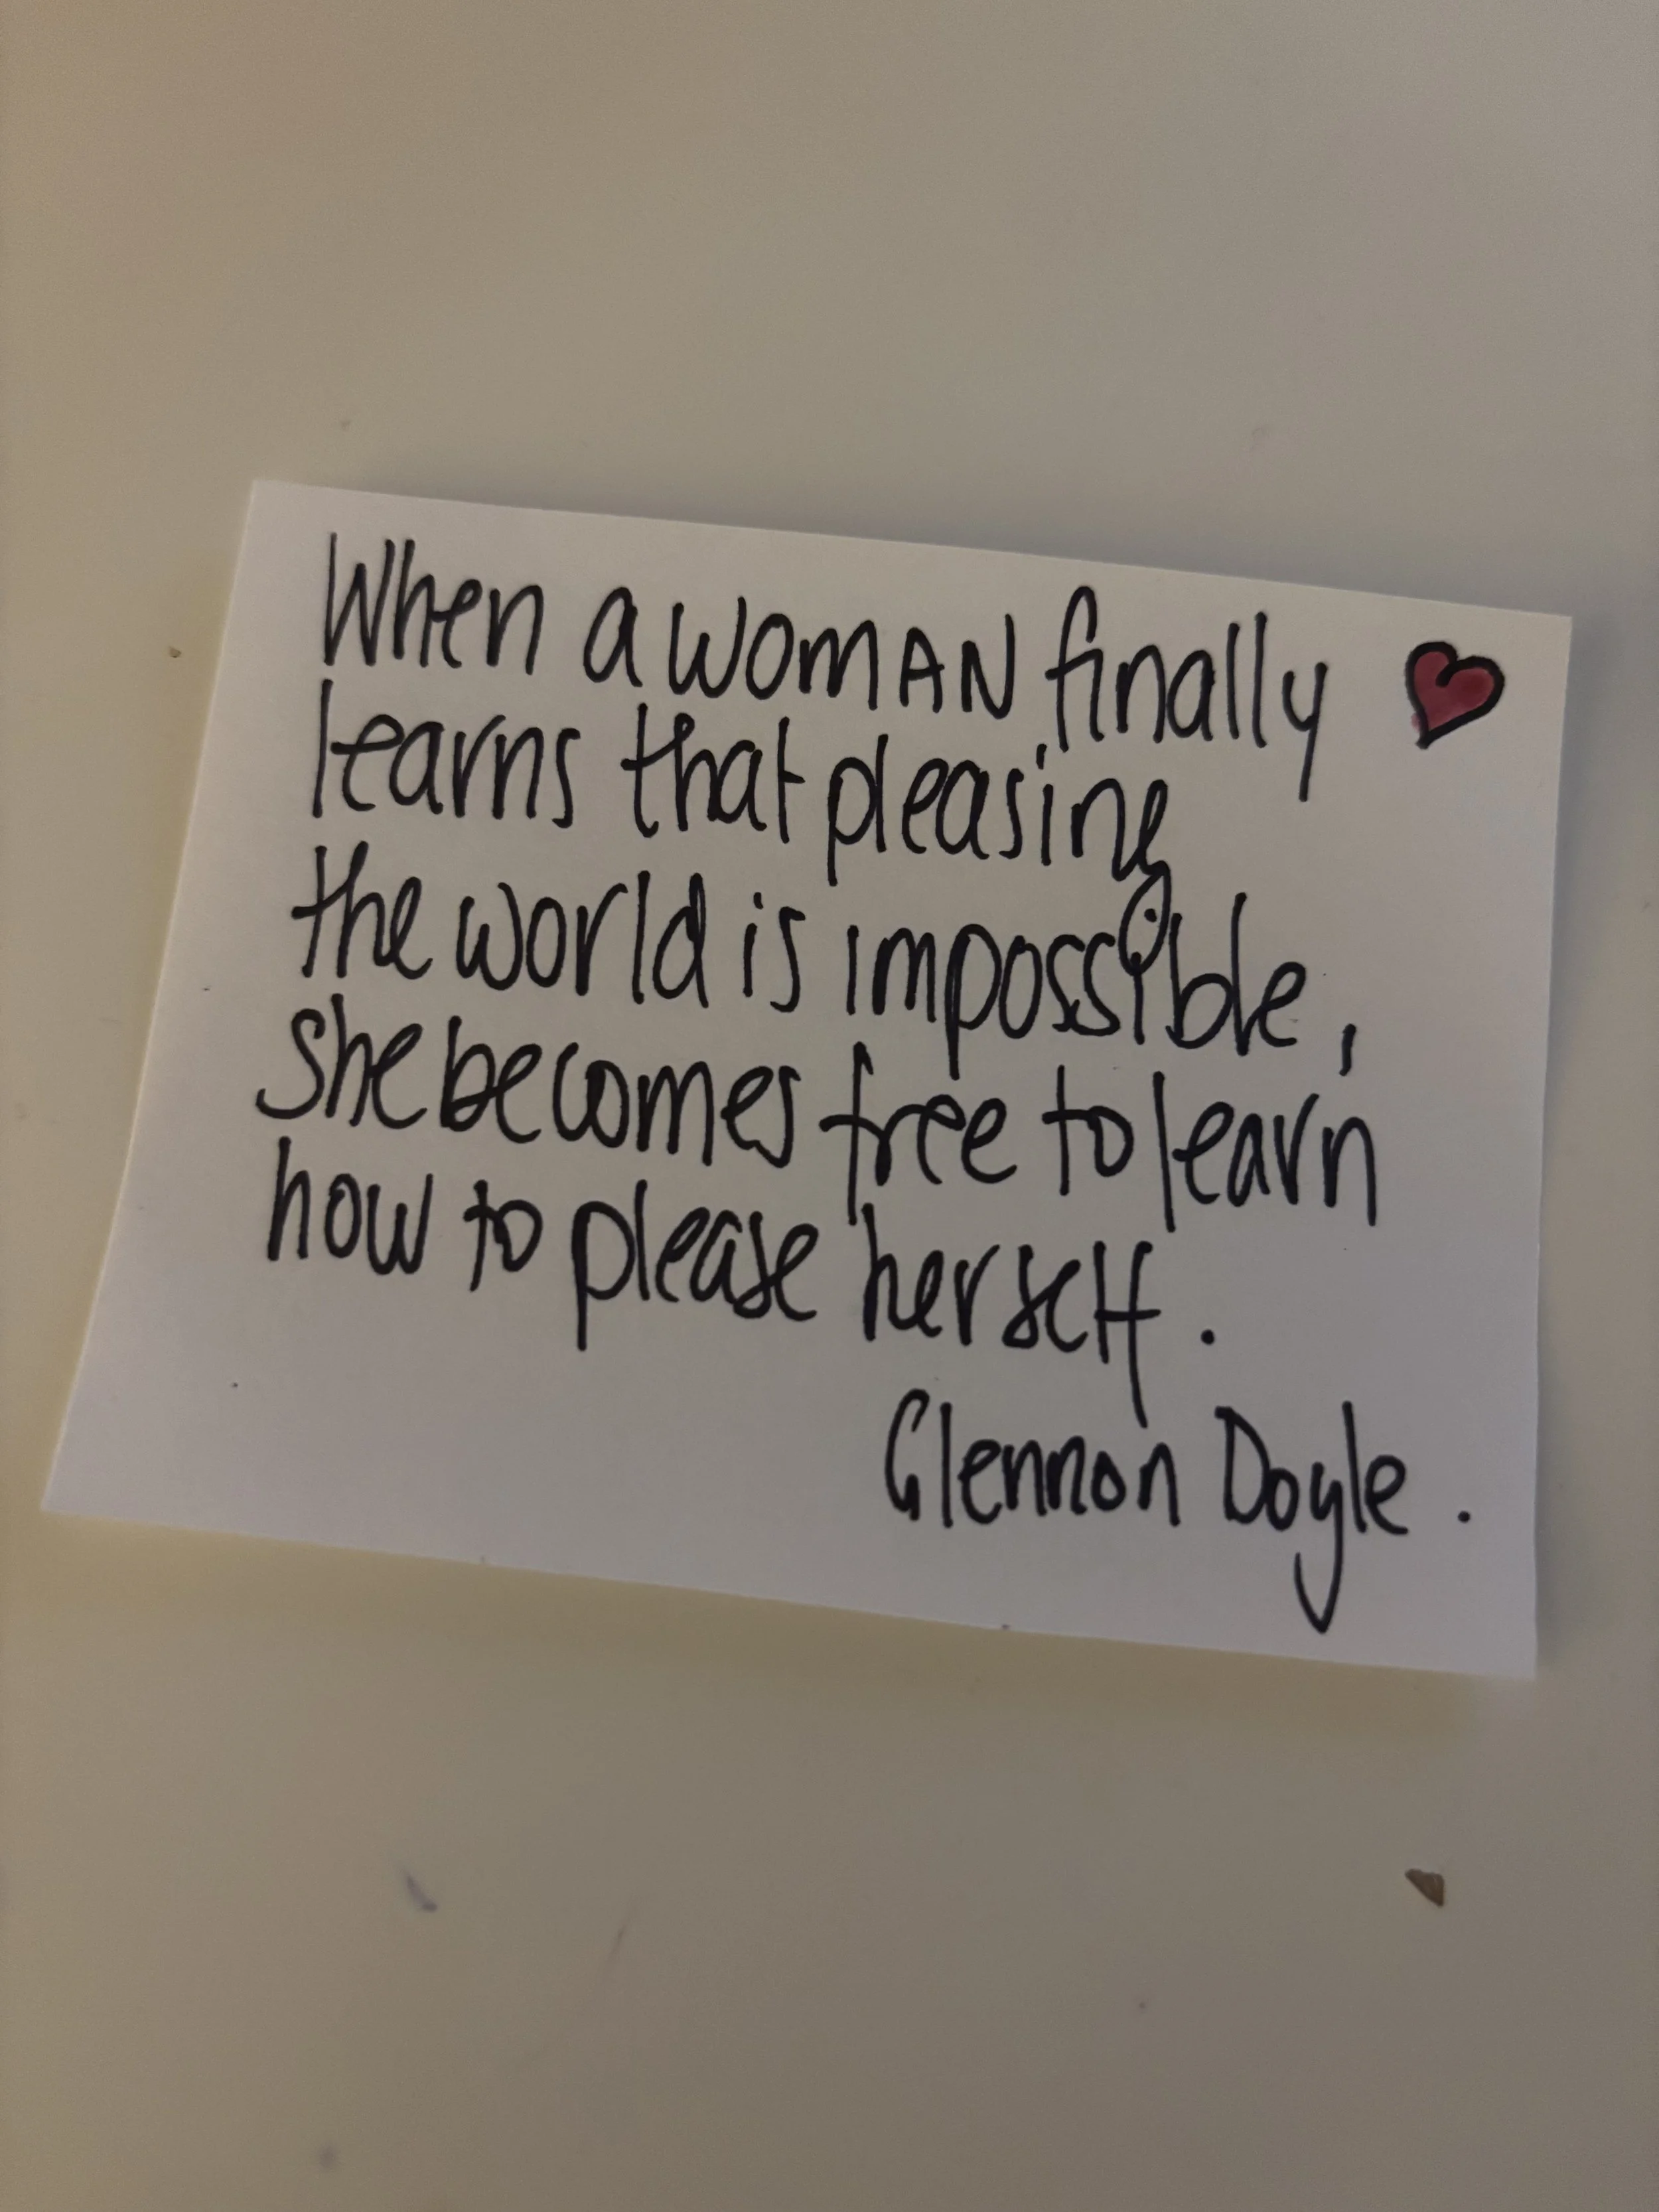 When a WOMAN finally
learns that pleasing
the world is impossible,
she becomes free to learn
how to please herself.
Glennon Doyle.